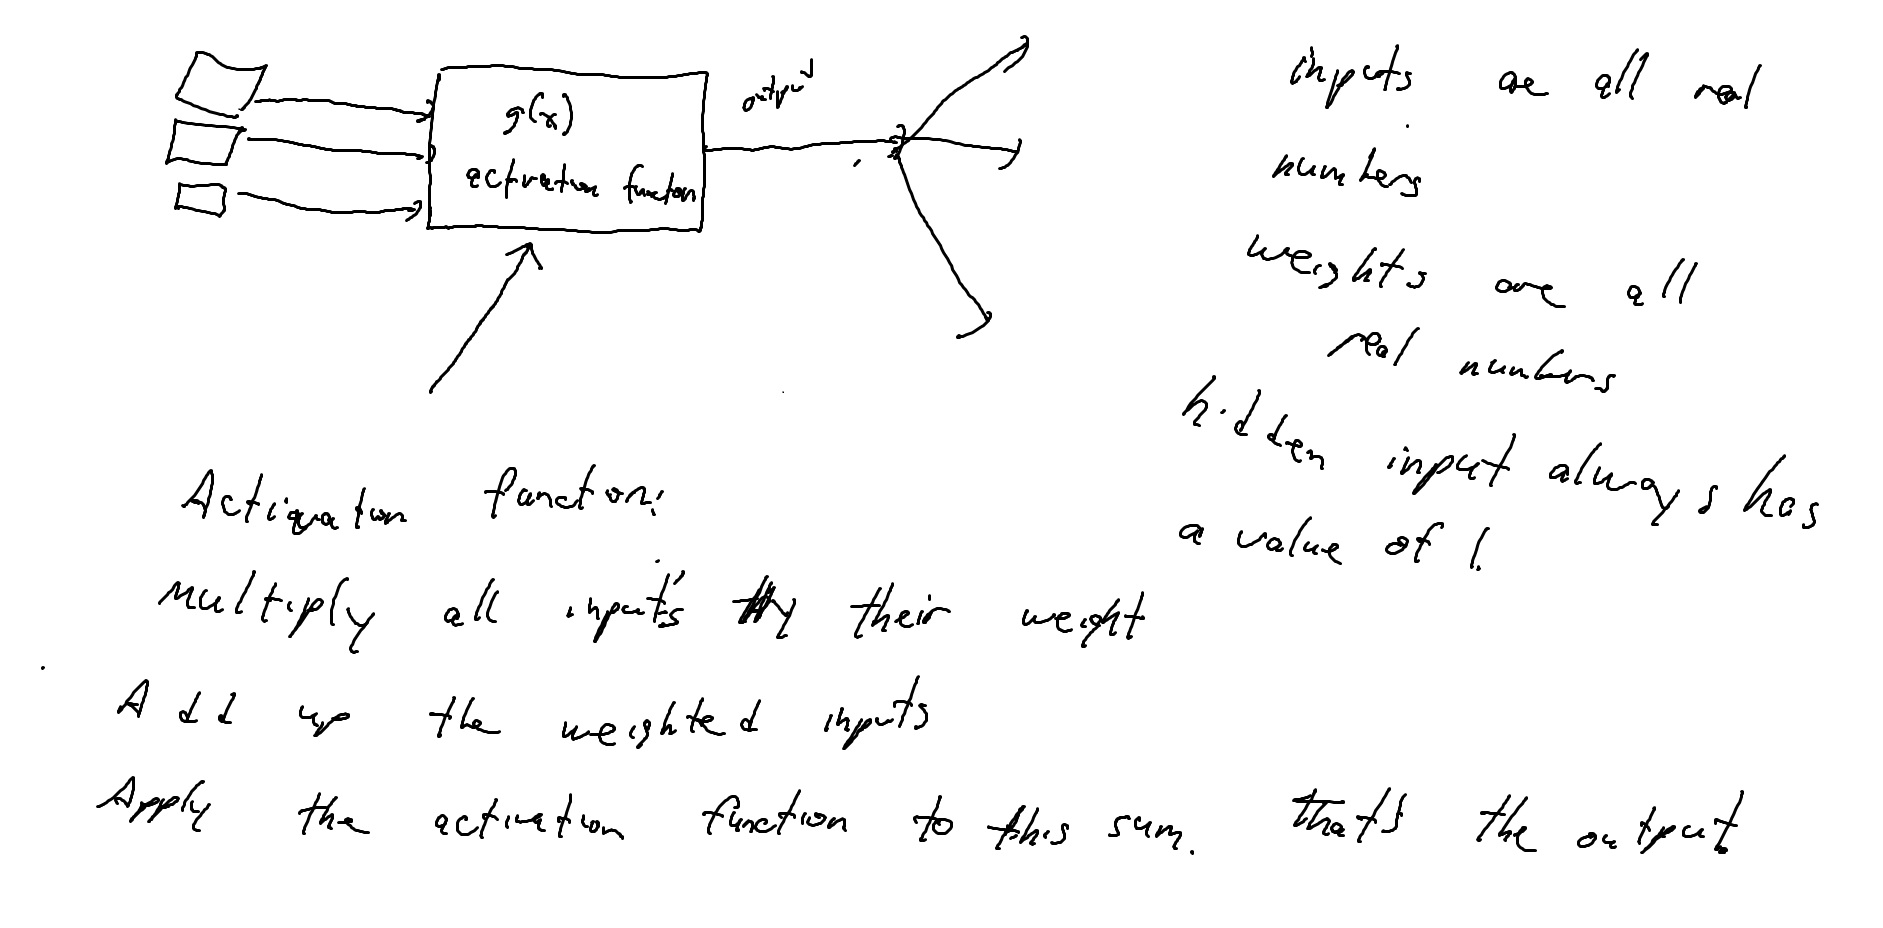 g(x)
activation function
output
inputs are all real
numbers
weights are all
real numbers
hidden input always has
a value of 1.
Activation function:
Multiply all inputs by their weight
Add up the weighted inputs
Apply the activation function to this sum. That's the output.